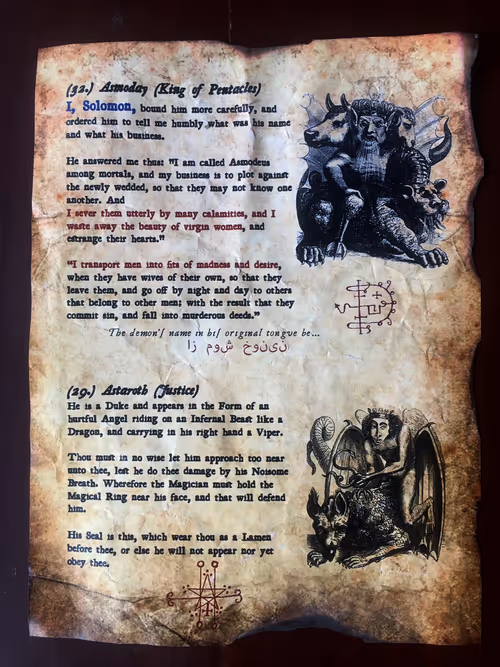 (32.) Asmoday (King of Pentacles)
I, Solomon, bound him more carefully, and
ordered him to tell me humbly what was his name
and what his business.
He answered me thus: "I am called Asmodeus
among mortals, and my business is to plot against
the newly wedded, so that they may not know one
another. And
I sever them utterly by many calamities, and I
waste away the beauty of virgin women, and
estrange their hearts."
"I transport men into fits of madness and desire,
when they have wives of their own, so that they
leave them, and go off by night and day to others
that belong to other men; with the result that they
commit sin, and fall into murderous deeds."
The demon's name in his original tongue be...
از شوم خونین
(29.) Astaroth (Justice)
He is a Duke and appears in the Form of an
hurtful Angel riding on an Infernal Beast like a
Dragon, and carrying in his right hand a Viper.
Thou must in no wise let him approach too near
unto thee, lest he do thee damage by his Noisome
Breath. Wherefore the Magician must hold the
Magical Ring near his face, and that will defend
him.
His Seal is this, which wear thou as a Lamen
before thee, or else he will not appear nor yet
obey thee.